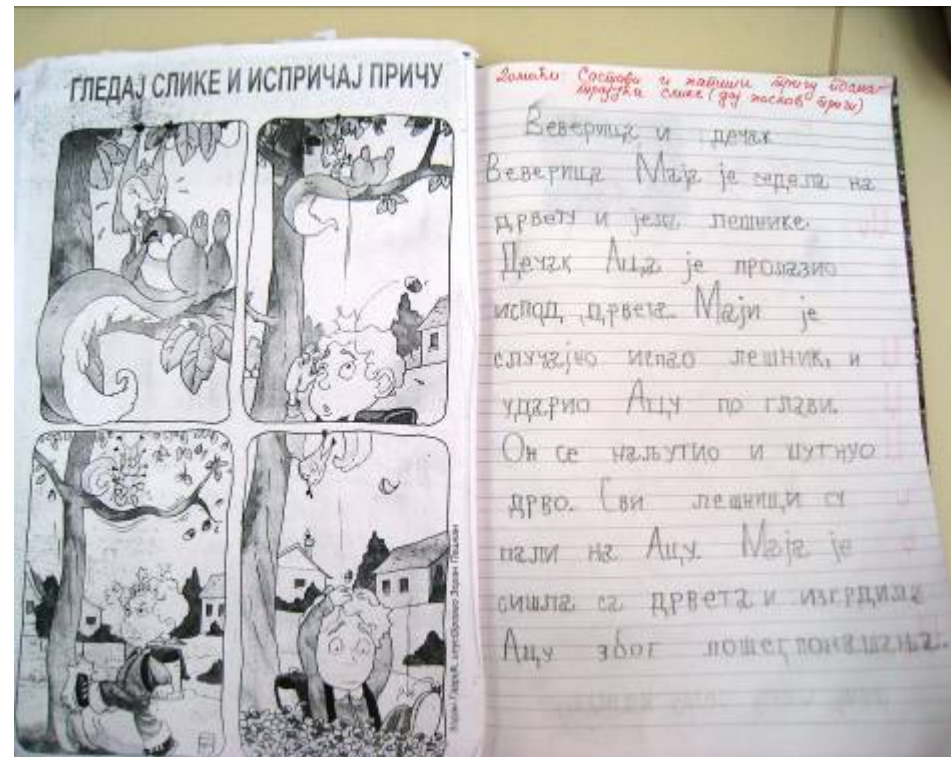 ГЛЕДАЈ СЛИКЕ И ИСПРИЧАЈ ПРИЧУ
Домаћи Састави и напиши причу
слике (дај наслов причи)
Веверица и дечак
Веверица Маја је седела на
дрвету и јела лешнике.
Дечак Аца је пролазио
испод дрвета. Маји је
случајно испао лешник, и
ударио Ацу по глави.
Он се наљутио и шутнуо
дрво. Сви лешници су
пали на Ацу. Маја је
сишла са дрвета и изгрдила
Ацу због лошег понашања.